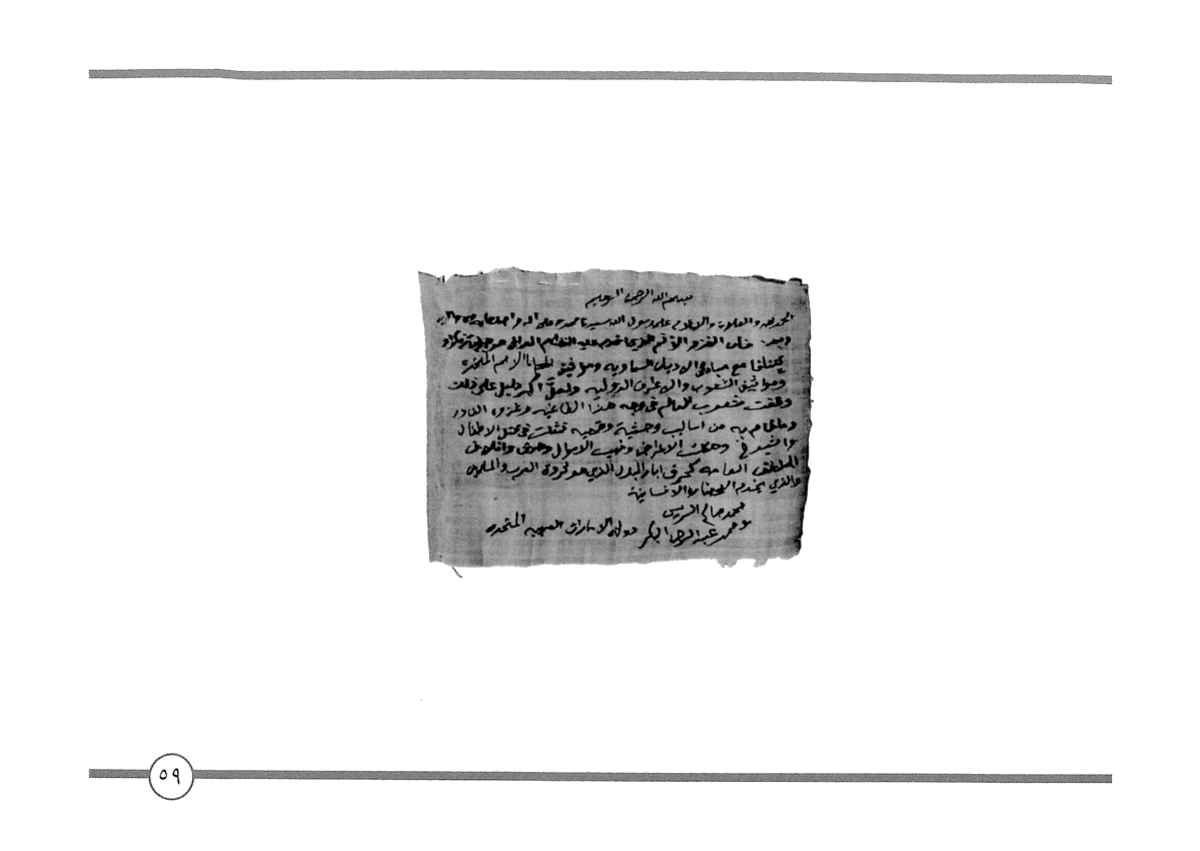 بسم الله الرحمن الرحيم
الحمد لله والصلاة والسلام على رسول الله سيدنا محمد وعلى آله وأصحابه
وبعد فان الغزو الذي قام عليه النظام العراقي
يتنافا مع مبادئ الاديان السماوية ومواثيق الامم المتحدة
ومواثيق الشعوب والاعراف الدولية ولعل أكبر دليل على ذلك
وقفت شعوب العالم في وجه هذا الطاغية وغزوه الغادر
وما قام به من اساليب وحشية وهمجية تمثلت في قتل الاطفال
والشيوخ وهتك الاعراض ونهب الاموال وحرق واتلاف
المرافق العامه كحرق ابار البترول الذي هو ثروة العرب والمسلمين
والذي يخدم الحضارة الانسانية
محمد صالح الريس
محمد عبد الرحمن البكر دولة الامارات العربيه المتحده
٥٩